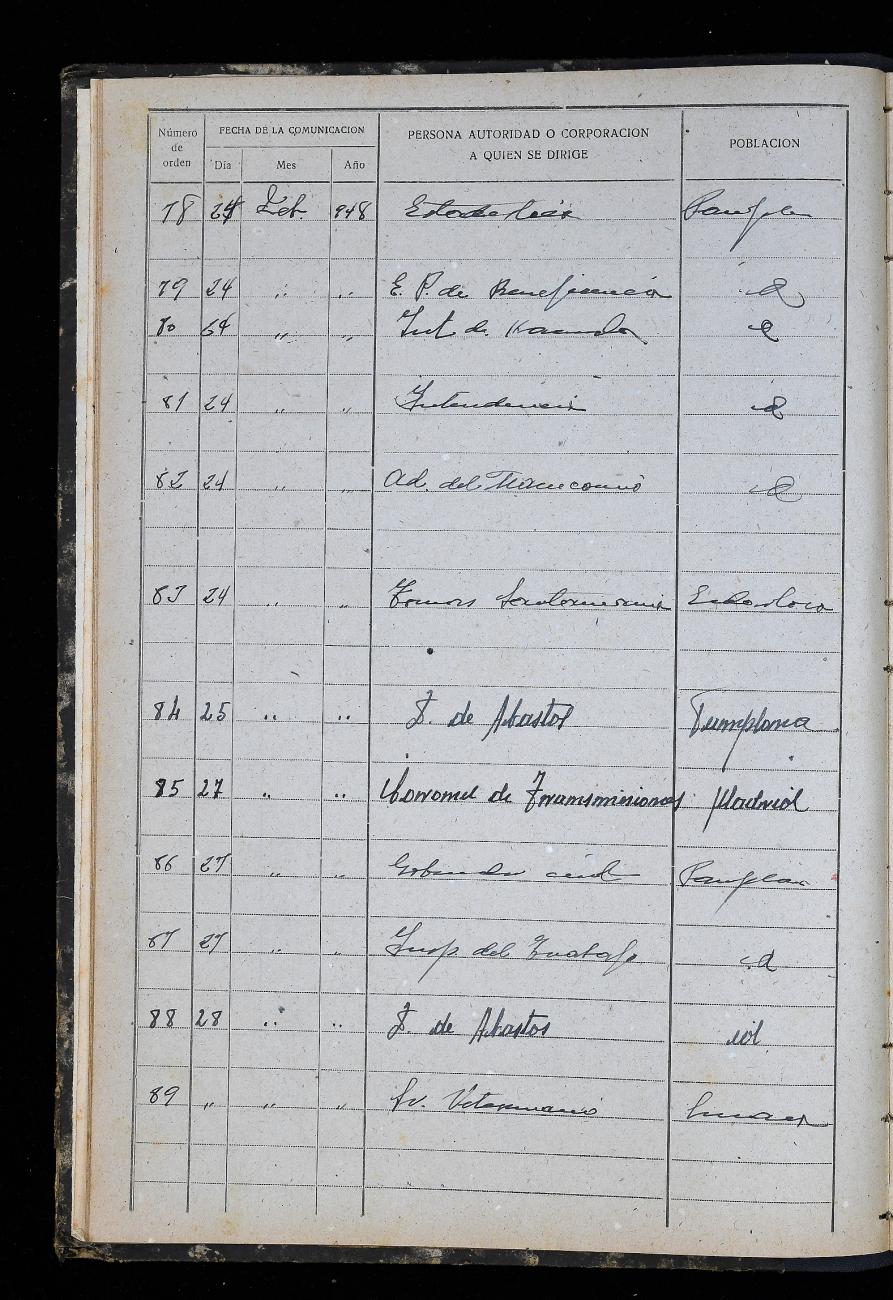 Número de orden FECHA DE LA COMUNICACION PERSONA AUTORIDAD O CORPORACION A QUIEN SE DIRIGE POBLACION
Día Mes Año
78 24 Feb. 948
79 24 ,, ,, E. P. de Beneficencia id
80 ,, ,, Int. de id
81 24 ,, ,, Intendencia id
82 24 ,, ,, Ad. del Manicomio id
83 24 ,, ,,
84 25 ,, ,, J. de Abastos Pamplona
85 27 ,, ,, Coronel de Transmisiones Madrid
86 27 ,, ,, Gobernador civil Pamplona
87 27 ,, ,, Insp. del Trabajo id
88 28 ,, ,, J. de Abastos id
89 ,, ,, ,, Sr. Veterinario